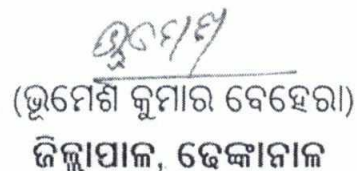 (ଭୂମେଶ କୁମାର ବେହେରା)
ଜିଲ୍ଲାପାଳ, ଢେଙ୍କାନାଳ